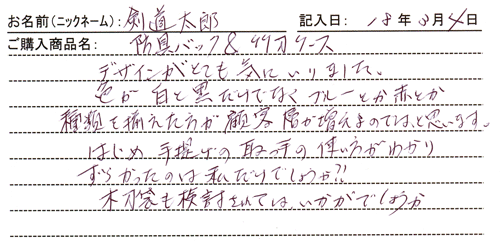 お名前(ニックネーム): 剣道太郎 記入日: 18年3月4日
ご購入商品名: 防具バック & 竹刀ケース
デザインがとても気にいりました。
色が白と黒だけでなくブルーとか赤とか
種類を揃えた方が顧客層が増えるのではと思います。
はじめ手提げの取っ手の使い方がわかり
ずらかったのは私だけでしょうか?!
木刀袋も検討されてはいかがでしょうか